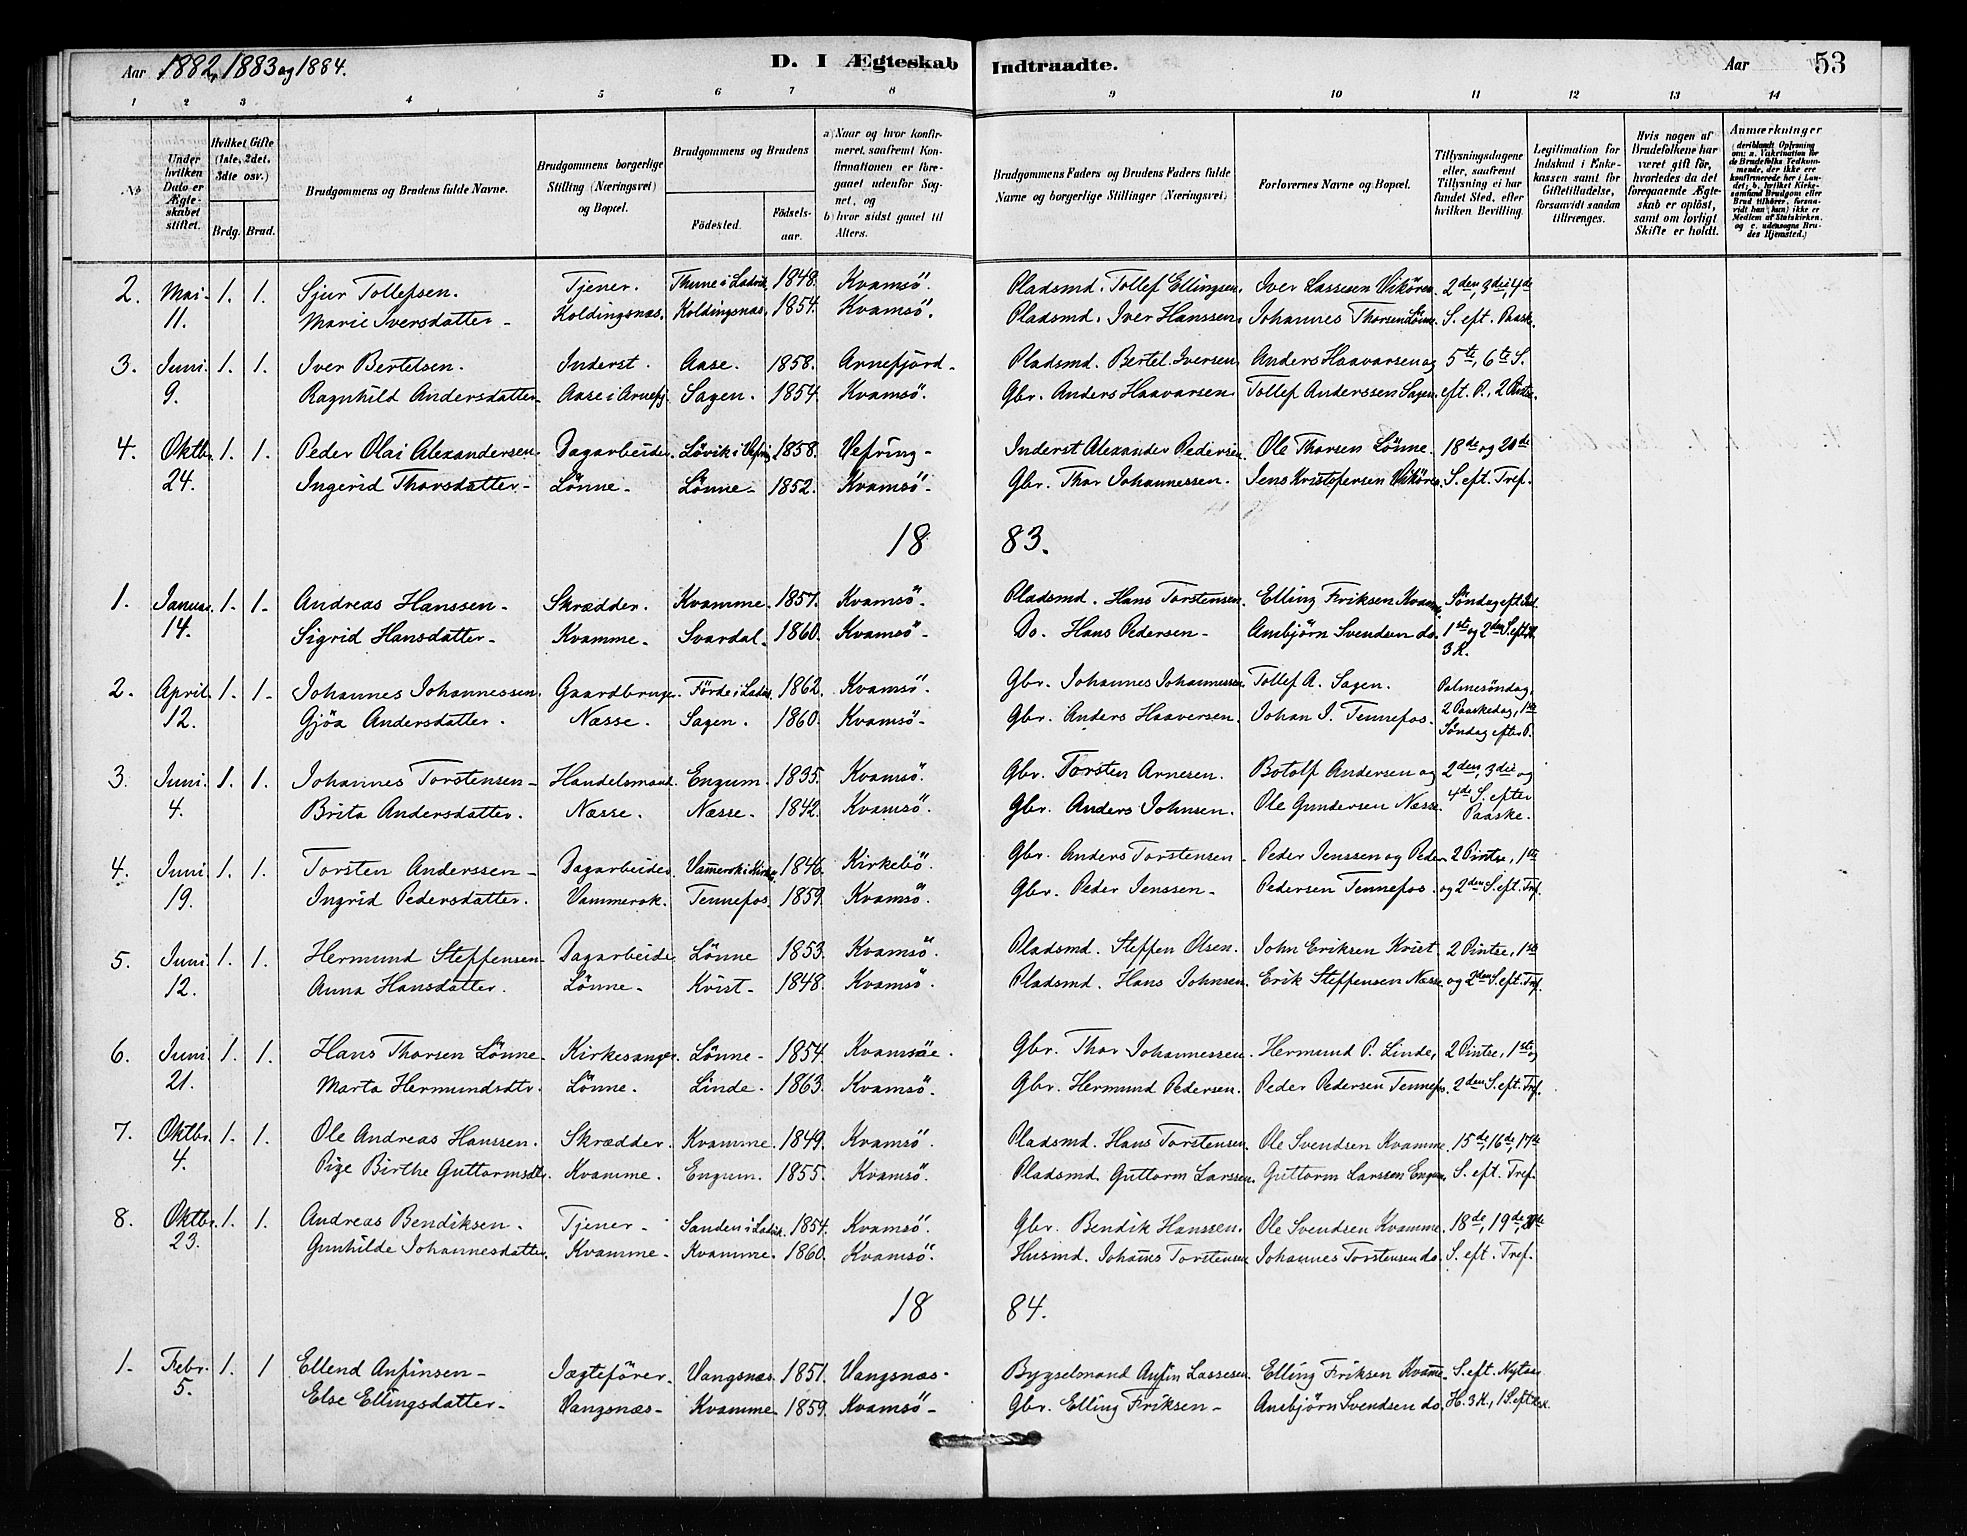 Aar 1882, 1883 og 1884. D. I Ægteskab Indtraadte. Aar 53
1 2 3 4 5 6 7 8 9 10 11 12 13 14
No
Under hvilken Dato er Ægteskabet stiftet.
Hvilket Gifte (1ste, 2det, 3die osv.)
Brdg. Brud.
Brudgommens og Brudens fulde Navne.
Brudgommens borgerlige Stilling (Næringsvei) og Bopæl.
Brudgommens og Brudens
Fødested. Fødselsaar.
a) Naar og hvor konfirmeret, saafremt Konfirmationen er foregaaet udenfor Sognet, og
b) hvor sidst gaaet til Alters.
Brudgommens Faders og Brudens Faders fulde Navne og borgerlige Stillinger (Næringsvei)
Forlovernes Navne og Bopæl.
Tillysningsdagene eller, saafremt Tillysning ei har fundet Sted, efter hvilken Bevilling.
Legitimation for Indskud i Enkekassen samt for Giftetilladelse, forsaavidt saadan tiltrænges.
Hvis nogen af Brudefolkene har været gift før, hvorledes da det foregaaende Ægteskab er opløst, samt om lovligt Skifte er holdt.
Anmærkninger (deriblandt Oplysning om: a. Vakcination for de Brudefolks Vedkommende, der ikke ere konfirmerede her i Landet; b. hvilket Kirkesamfund Brudgom eller Brud tilhører, forsaavidt han (hun) ikke er Medlem af Statskirken. og c. udensogns Brudes Hjemsted.)
2. Mai 1. 1. Sjur Tollefsen. Tjener. Thune i Ladvik 1848. Kvamsö. Pladsmd. Tollef Ellingsen. Iver Lassesen Vikören. 2den, 3die, 4de
11. Marie Iversdatter Koldingsnæs. Koldingsnæs. 1854. Kvamsö. Pladsmd. Iver Hanssen. Johannes Thorsen Lönne. S. eft. Paaske.
3. Juni. 1. 1. Iver Bertelsen. Inderst. Aase. 1858. Arnefjord. Pladsmd. Bertel Iversen. Anders Haavarsen og 5te, 6te S.
9. Ragnhild Andersdatter Aase i Arnefj. Sagen. 1854. Kvamsö. Gbr. Anders Haavarsen Tollef Anderssen Sagen. eft. P., 2 Pintse.
4. Oktbr. 1. 1. Peder Olai Alexandersen. Dagarbeider. Lövik i Vefring 1858. Vefring Inderst Alexander Pedersen. Ole Thorsen Lönne. 18de og 20de
24. Ingerid Thorsdatter Lönne Lönne 1852. Kvamsö Gbr. Thor Johannessen. Jens Kristofersen Vikören. S. eft. Tref.
18 83.
1. Januar. 1. 1. Andreas Hanssen Skrædder. Kvamme. 1857. Kvamsö. Pladsmd. Hans Torstensen. Elling Friksen Kvamme. Söndag eft. Jul.
14. Sigrid Hansdatter Kvamme Svardal. 1860. Kvamsö Do. Hans Pedersen Ansbjörn Svendsen do. 1ste og 2den S. eft. H. 3 K.
2. April. 1. 1. Johannes Johannessen. Gaardbruger. Förde i Ladvik. 1862. Kvamsö. Gbr. Johannes Johannessen. Tollef A. Sagen. Palmesöndag,
12. Gjöa Andersdatter. Næsse. Sagen. 1860. Kvamsö Gbr. Anders Haaversen. Johan J. Tennefos. 2 Paaskedag, 1ste Söndag efter P.
3. Juni. 1. 1. Johannes Torstensen Handelsmand. Engum. 1835. Kvamsö. Gbr. Torsten Arnesen. Botolf Andersen og 2den, 3die og
4. Brita Andersdatter. Næsse. Næsse. 1842. Kvamsö. Gbr. Anders Johnsen. Ole Gundersen Næsse 4de S. efter Paaske.
4. Juni. 1. 1. Torsten Anderssen Dagarbeider. Vamerok i Kirkebö 1846. Kirkebö. Gbr. Anders Torstensen Peder Jenssen og Peder 2 Pintse, 1ste
19. Ingrid Pedersdatter. Vammerok. Tennefos. 1859. Kvamsö. Gbr. Peder Jenssen Pedersen Tennefos. og 2den S. eft. Tref.
5. Juni 1. 1. Hermund Steffensen Dagarbeider Lönne 1853. Kvamsö. Pladsmd. Steffen Olsen. John Eriksen Kvist 2 Pintse, 1ste
12. Anna Hansdatter. Lönne. Kvist. 1848. Kvamsö. Pladsmd. Hans Johnsen. Erik Steffensen Næsse. og 2den S. eft. Tref.
6. Juni. 1. 1. Hans Thorsen Lönne Kirkesanger. Lönne 1854. Kvamsöe. Gbr. Thor Johannessen. Hermund P. Linde, 2 Pintse, 1ste og
21. Marta Hermundsdtr. Lönne. Linde. 1863. Kvamsö. Gbr. Hermund Pedersen. Peder Pedersen Tennefos. 2den S. eft. Tref.
7. Oktbr. 1. 1. Ole Andreas Hanssen. Skrædder. Kvamme. 1849. Kvamsö. Pladsmd. Hans Torstensen. Ole Svendsen Kvamme. 15de, 16de, 17de
4. Pige Birthe Guttormsdtr. Kvamme. Engum. 1855. Kvamsö. Pladsmd. Guttorm Larssen. Guttorm Larssen Engum. S. eft. Tref.
8. Oktbr. 1. 1. Andreas Bendiksen. Tjener Sanden i Ladvik. 1854. Kvamsö. Gbr. Bendik Hanssen. Ole Svendsen Kvamme. 18de, 19de, 20de
23. Gunhilde Johannesdatter. Kvamme Kvamme 1860. Kvamsö. Husmd. Johans Torstensen Johannes Torstensen do. S. eft. Tref.
18 84.
1. Febr. 1. 1 Ellend Anfinsen Jægtefører. Vangsnæs. 1851. Vangsnæs. Bygselmand Anfin Lassesen Elling Friksen Kvamme. S. eft. Nytaar
5. Else Ellingsdatter Vangsnæs Kvamme 1859. Kvamsö Gbr. Elling Friksen Ansbjörn Svendsen do. H. 3 K., 1 S. eft. H. 3 K.